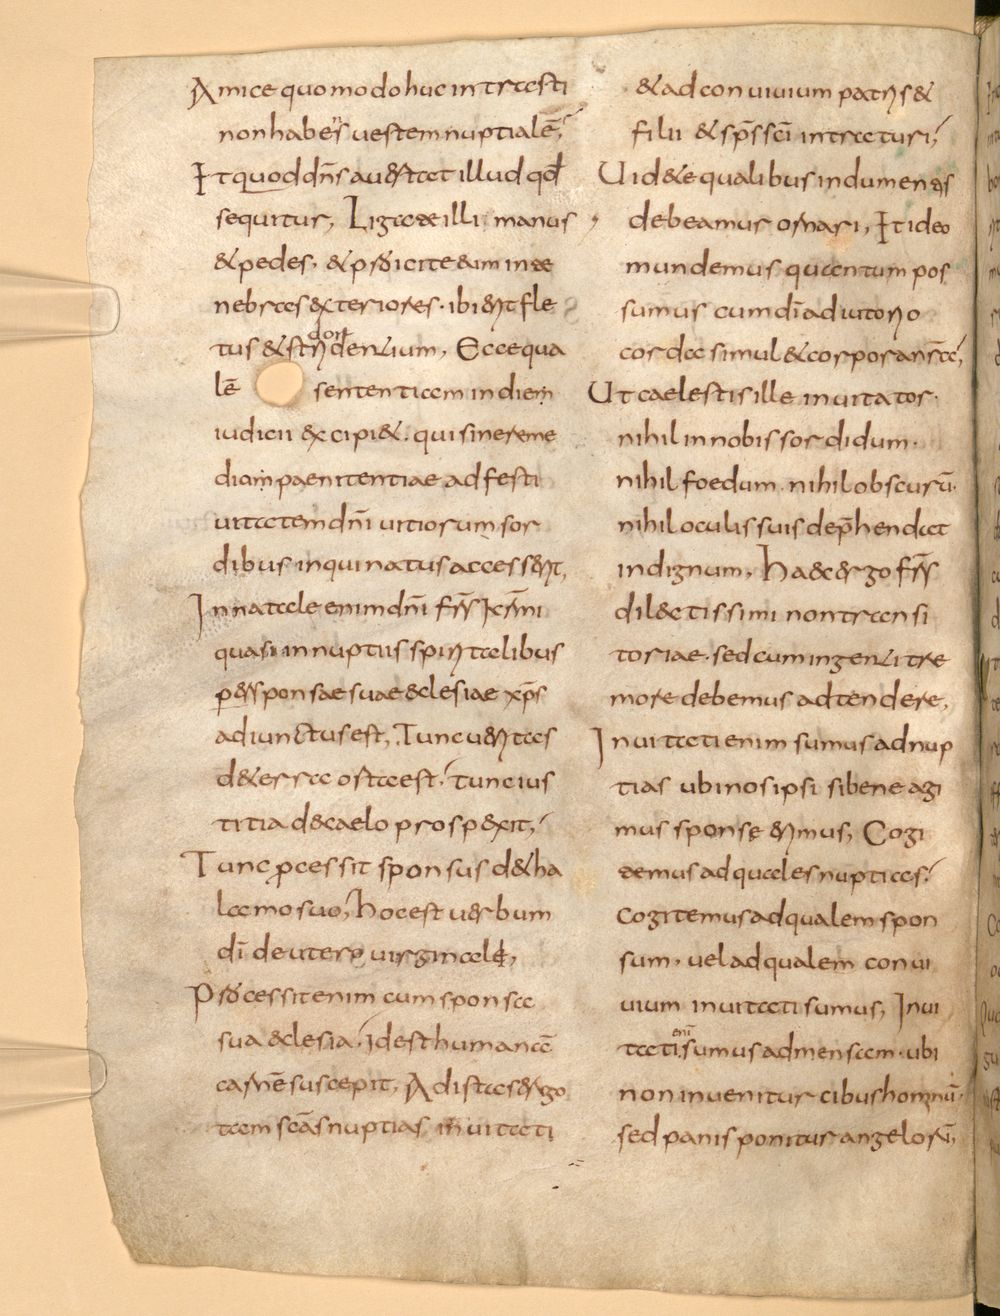 Amice quomodo huc intrasti
non habens uestem nuptialē;
Et quod dn̄s auertat illud qđ
sequitur, Ligate illi manus
& pedes, & proicite eum in te
nebras exteriores. ibi erit fle
tus & stridor dentium, Ecce qua
lē sententiam in diem
iudicii excipi&. qui sine reme
diam paenitentiae ad festi
uitatem dn̄i uitiorum sor
dibus inquinatus accesserit,
In natale enim dn̄i fr̄s kr̄mi
quasi in nuptiis spiritalibus
per sponsae suae eclesiae xp̄s
adiunctus est, Tunc ueritas
de terra osta est. tunc ius
titia de caelo prospexit,
Tunc pcessit sponsus de tha
lamo suo, hoc est uerbum
dī de utero uirginale,
Processit enim cum sponsa
sua eclesia. id est humanā
carnē suscepit, Ad istas ergo
tam scās nuptias inuitati
& ad conuiuium patris &
filii & sp̄s sc̄i intraturi,
Uidete qualibus indumentis
debeamus ornari, Et ideo
mundemus quantum pos
sumus cum dī adiutorio
corda simul & corpora nr̄a,
Ut caelestis ille inuitator.
nihil in nobis sordidum.
nihil foedum. nihil obscurū.
nihil oculis suis dep̄hendat
indignum, haec ergo fr̄s
dilectissimi non transi
toriae. sed cum ingenti tre
more debemus adtendere,
Inuitati enim sumus ad nup
tias ubi nos ipsi si bene agi
mus sponse erimus, Cogi
temus ad quales nuptias.
cogitemus ad qualem spon
sum. uel ad qualem conui
uium inuitati sumus, Inui
tati enī sumus ad mensam. ubi
non inuenitur cibus hominū.
sed panis ponitur angelorū,